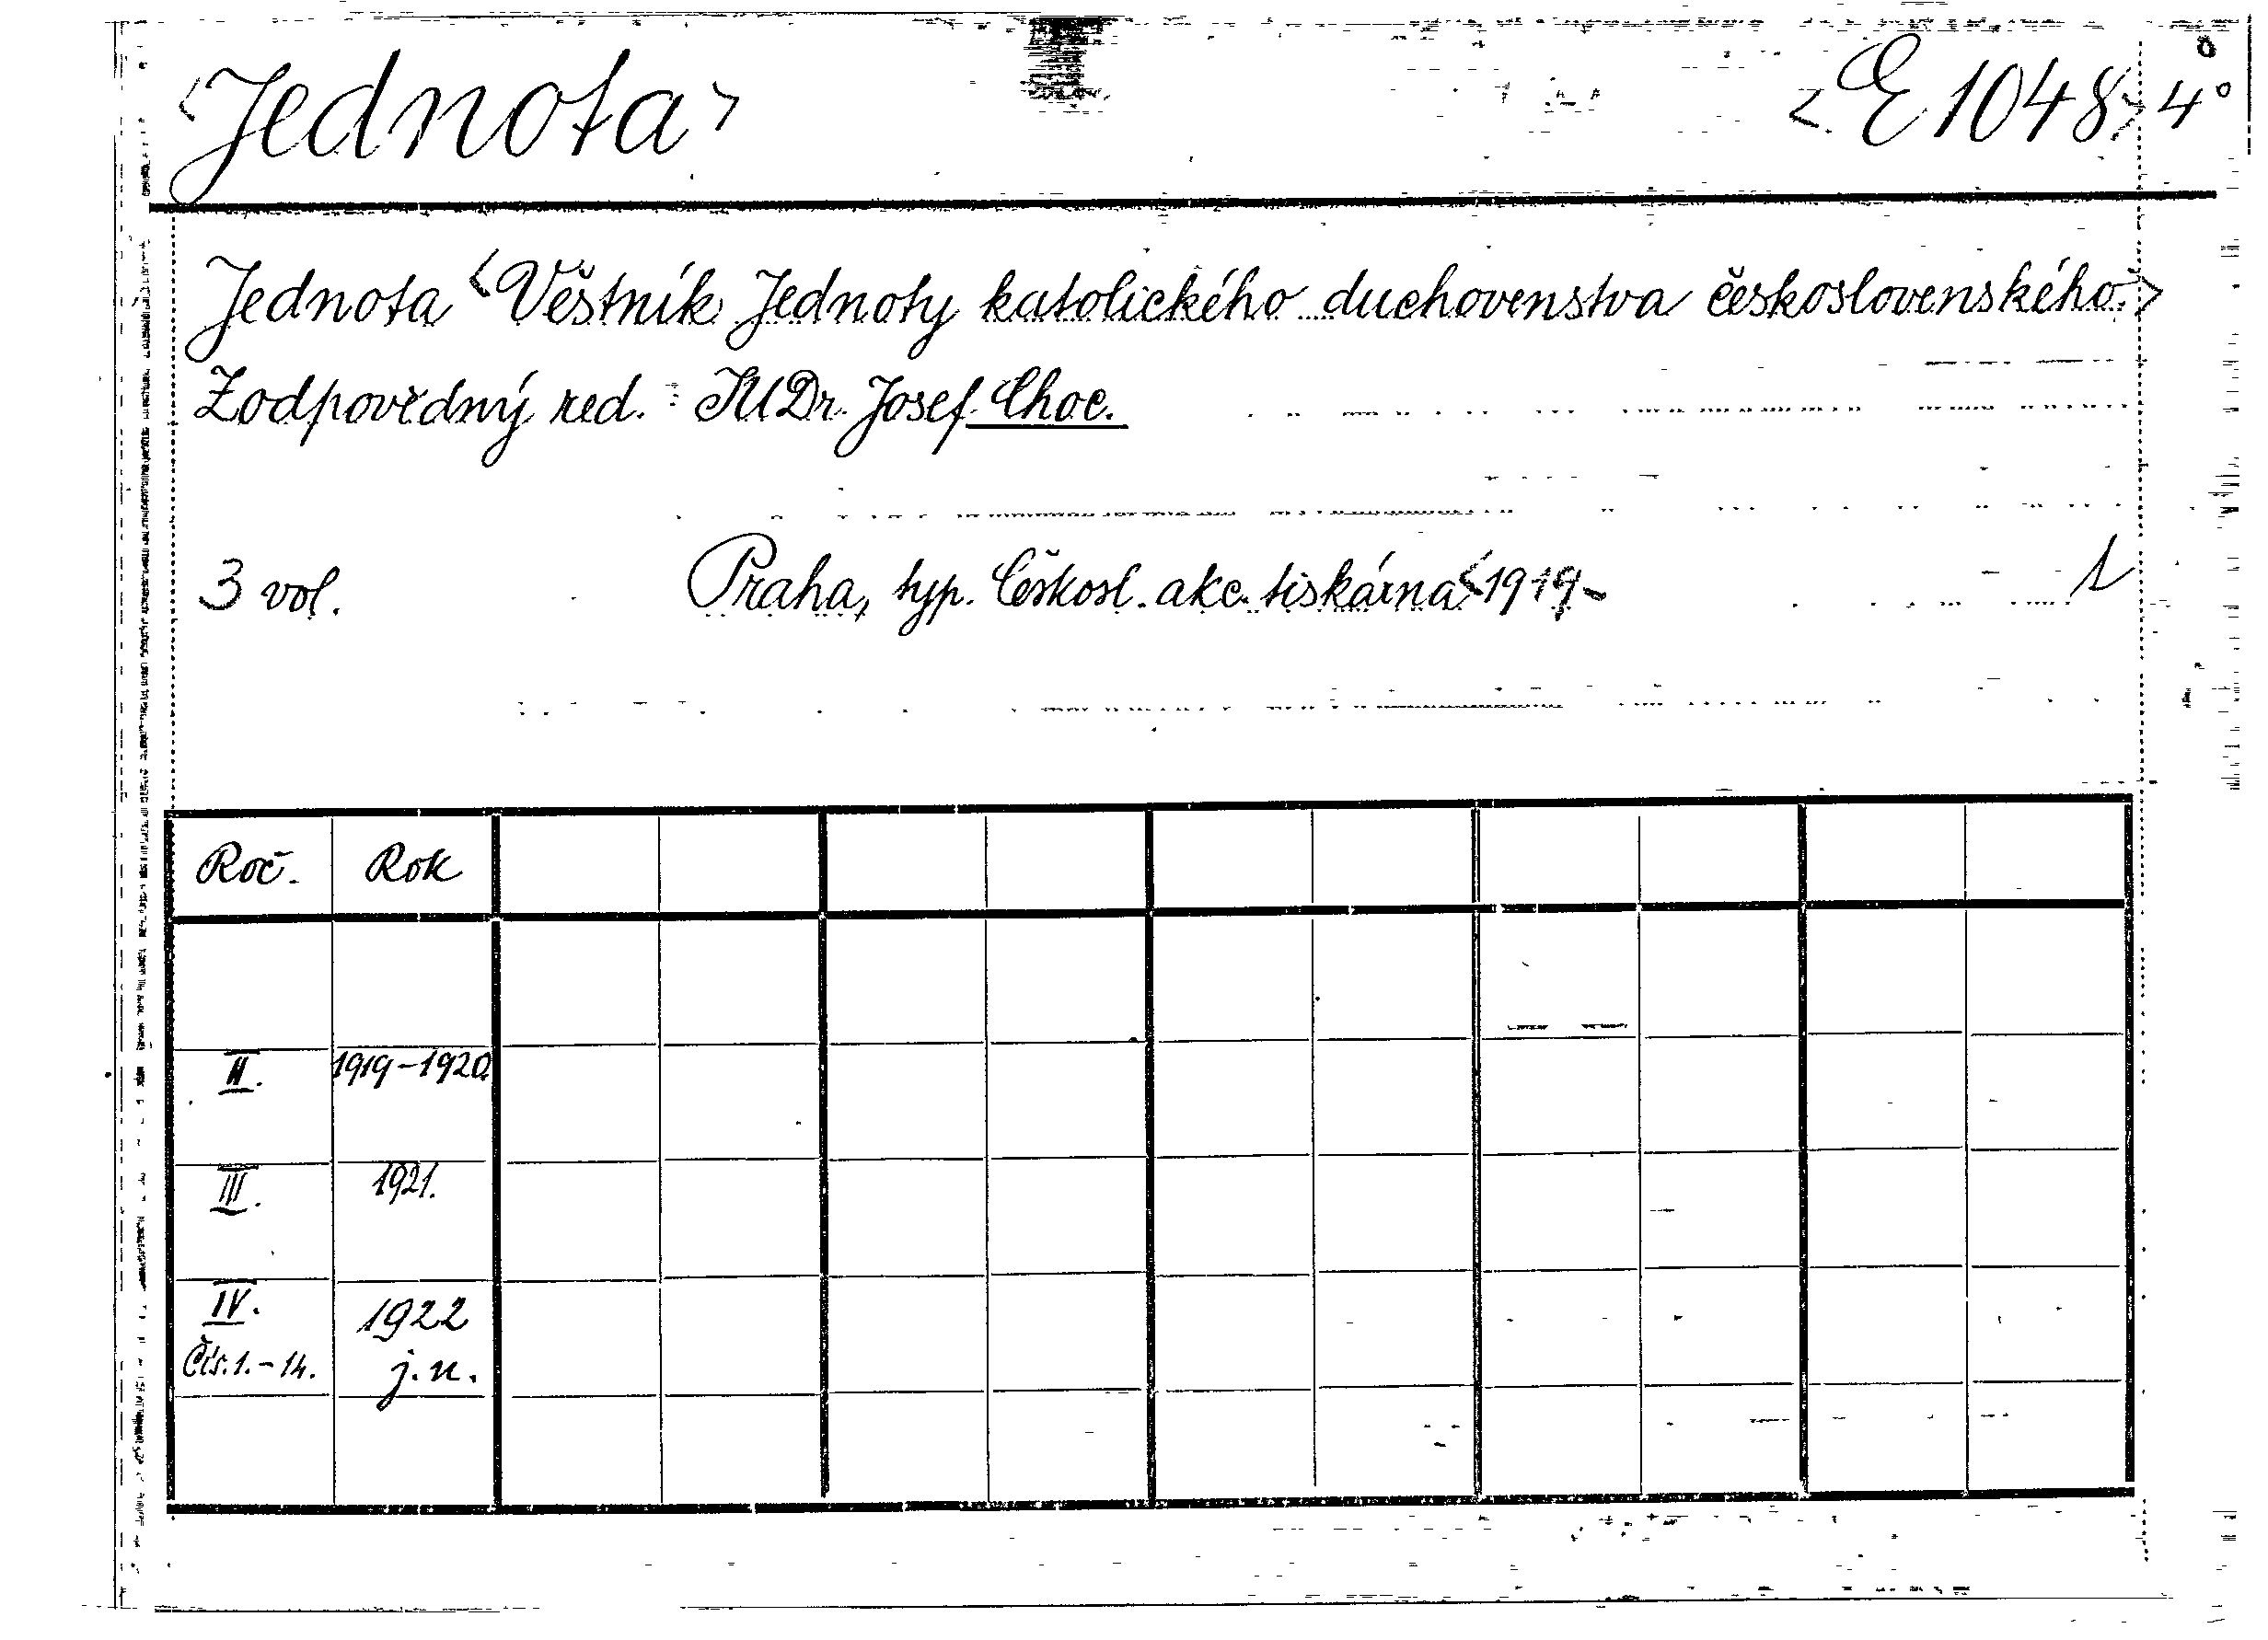 <Jednota> <E 1048> 4°
Jednota <Věstník Jednoty katolického duchovenstva československého.>
Zodpovědný red. : JUDr. Josef Choc.
3 vol. Praha, typ. Českosl. akc. tiskárna <1919- 1
Roč. Rok
II. 1919-1920.
III. 1921.
IV. 1922
Čís. 1.-14. j. n.